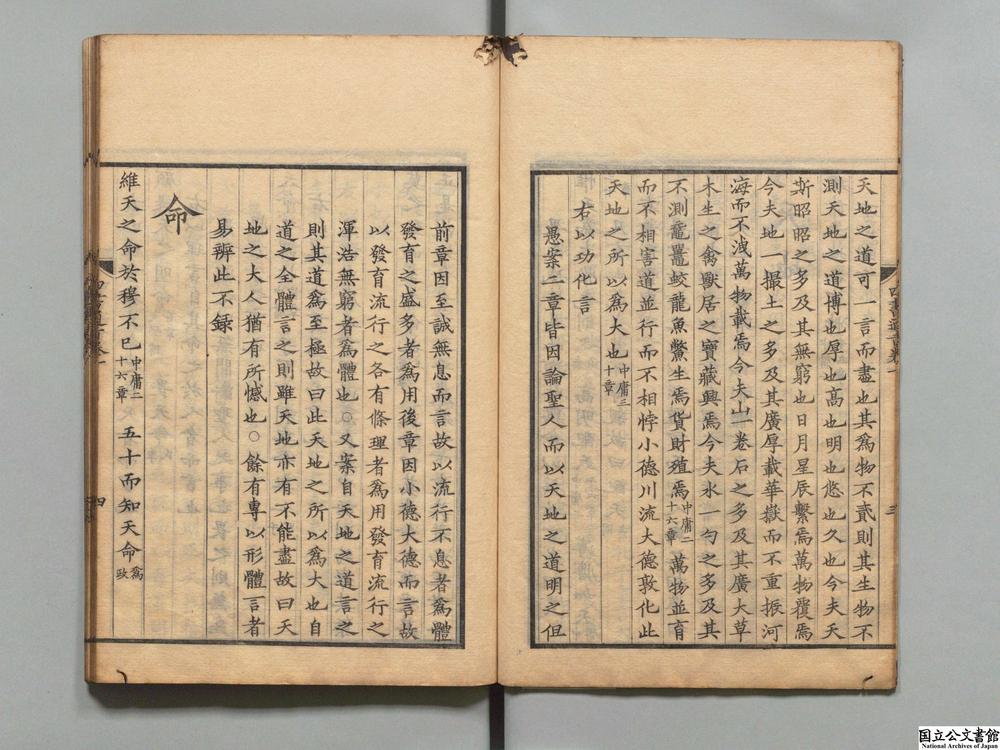 天地之道可一言而盡也其爲物不貳則其生物不
測天地之道博也厚也髙也明也悠也久也今夫天
斯昭昭之多及其無窮也日月星辰繫焉萬物覆焉
今夫地一撮土之多及其廣厚載華嶽而不重振河
海而不洩萬物載焉今夫山一卷石之多及其廣大草
木生之禽獸居之寶藏興焉今夫水一勺之多及其
不測黿鼉蛟龍魚鱉生焉貨財殖焉中庸二十六章萬物並育
而不相害道並行而不相悖小德川流大德敦化此
天地之所以爲大也中庸三十章
右以功化言
愚案二章皆因論聖人而以天地之道明之但
三
前章因至誠無息而言故以流行不息者爲體
發育之盛多者爲用後章因小德大德而言故
以發育流行之各有條理者爲用發育流行之
渾浩無窮者爲體也○又案自天地之道言之
則其道爲至極故曰此天地之所以爲大也自
道之全體言之則雖天地亦有不能盡故曰天
地之大人猶有所憾也○餘有專以形體言者
易辨此不錄
命
維天之命於穆不已中庸二十六章 五十而知天命爲政
四
国立公文書館
National Archives of Japan